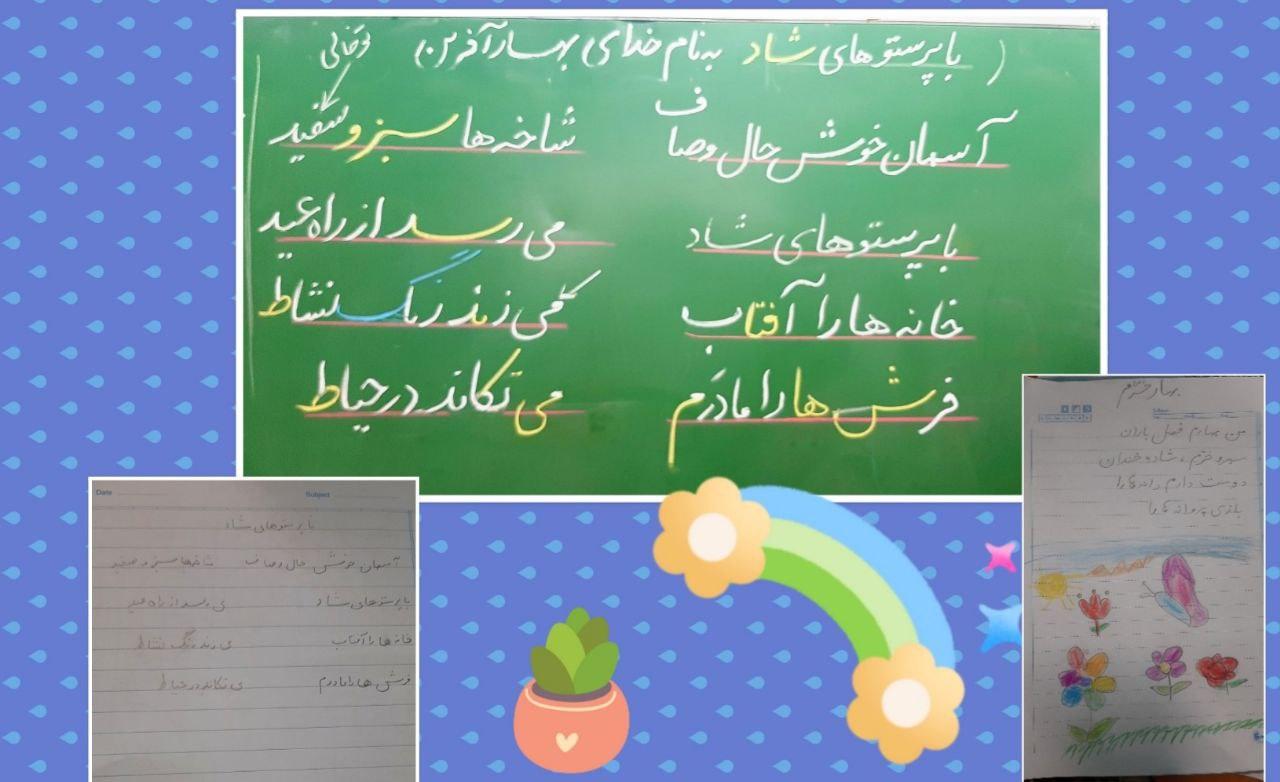 با پرستوهای شاد به نام خدای بهارآفرین
آسمان خوش حال و صاف شاخه ها سبز و سفید
با پرستوهای شاد می رسد از راه عید
خانه ها را آفتاب می زند رنگ نشاط
فرش ها را مادَرم می تکاند در حیاط
Date Subject
با پرستوهای شاد
آسمان خوش حال و صاف شاخها سبز و صفید
با پرستوهای شاد می رسد از راه عید
خانه ها را آفتاب می زند رنگ نشاط
فرش ها را مادرم می تکاند در حیاط
بهار خرّم
من بهارم فصل باران
سبز و خرّم، شاد و خندان
دوست دارم
بازی پروانه ها را